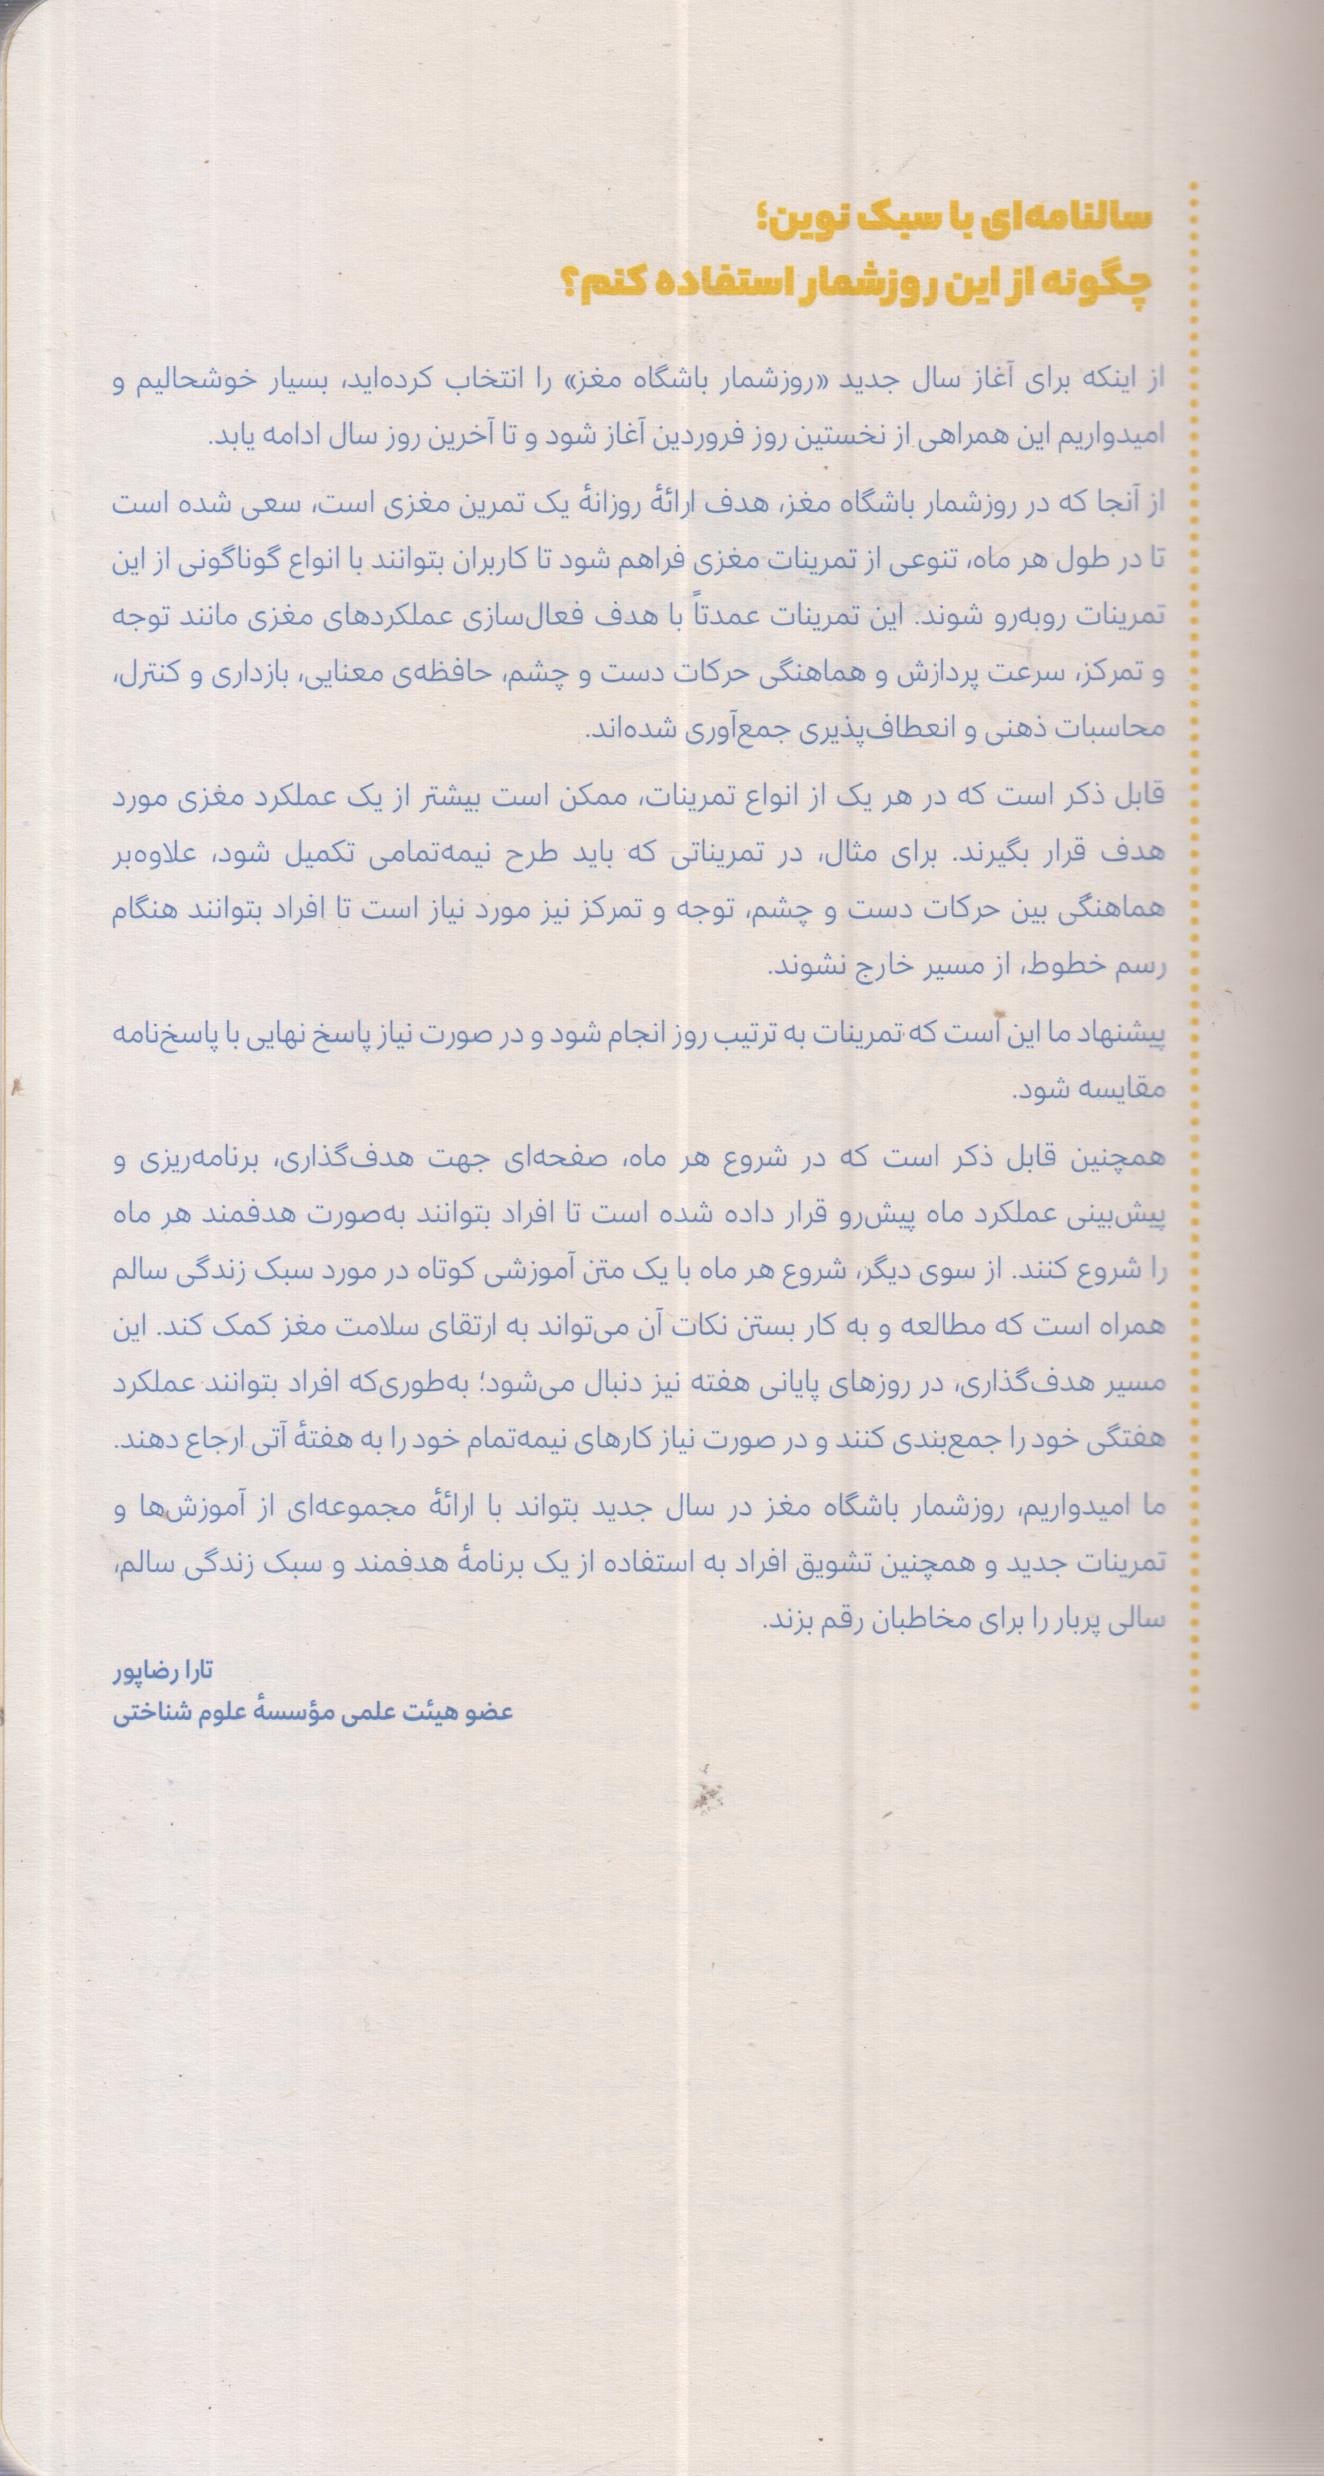 سالنامه‌ای با سبک نوین؛
چگونه از این روزشمار استفاده کنم؟
از اینکه برای آغاز سال جدید «روزشمار باشگاه مغز» را انتخاب کرده‌اید، بسیار خوشحالیم و
امیدواریم این همراهی از نخستین روز فروردین آغاز شود و تا آخرین روز سال ادامه یابد.
از آنجا که در روزشمار باشگاه مغز، هدف ارائهٔ روزانهٔ یک تمرین مغزی است، سعی شده است
تا در طول هر ماه، تنوعی از تمرینات مغزی فراهم شود تا کاربران بتوانند با انواع گوناگونی از این
تمرینات روبه‌رو شوند. این تمرینات عمدتاً با هدف فعال‌سازی عملکردهای مغزی مانند توجه
و تمرکز، سرعت پردازش و هماهنگی حرکات دست و چشم، حافظه‌ی معنایی، بازداری و کنترل،
محاسبات ذهنی و انعطاف‌پذیری جمع‌آوری شده‌اند.
قابل ذکر است که در هر یک از انواع تمرینات، ممکن است بیشتر از یک عملکرد مغزی مورد
هدف قرار بگیرند. برای مثال، در تمریناتی که باید طرح نیمه‌تمامی تکمیل شود، علاوه‌بر
هماهنگی بین حرکات دست و چشم، توجه و تمرکز نیز مورد نیاز است تا افراد بتوانند هنگام
رسم خطوط، از مسیر خارج نشوند.
پیشنهاد ما این است که تمرینات به ترتیب روز انجام شود و در صورت نیاز پاسخ نهایی با پاسخ‌نامه
مقایسه شود.
همچنین قابل ذکر است که در شروع هر ماه، صفحه‌ای جهت هدف‌گذاری، برنامه‌ریزی و
پیش‌بینی عملکرد ماه پیش‌رو قرار داده شده است تا افراد بتوانند به‌صورت هدفمند هر ماه
را شروع کنند. از سوی دیگر، شروع هر ماه با یک متن آموزشی کوتاه در مورد سبک زندگی سالم
همراه است که مطالعه و به کار بستن نکات آن می‌تواند به ارتقای سلامت مغز کمک کند. این
مسیر هدف‌گذاری، در روزهای پایانی هفته نیز دنبال می‌شود؛ به‌طوری‌که افراد بتوانند عملکرد
هفتگی خود را جمع‌بندی کنند و در صورت نیاز کارهای نیمه‌تمام خود را به هفتهٔ آتی ارجاع دهند.
ما امیدواریم، روزشمار باشگاه مغز در سال جدید بتواند با ارائهٔ مجموعه‌ای از آموزش‌ها و
تمرینات جدید و همچنین تشویق افراد به استفاده از یک برنامهٔ هدفمند و سبک زندگی سالم،
سالی پربار را برای مخاطبان رقم بزند.
تارا رضاپور
عضو هیئت علمی مؤسسهٔ علوم شناختی